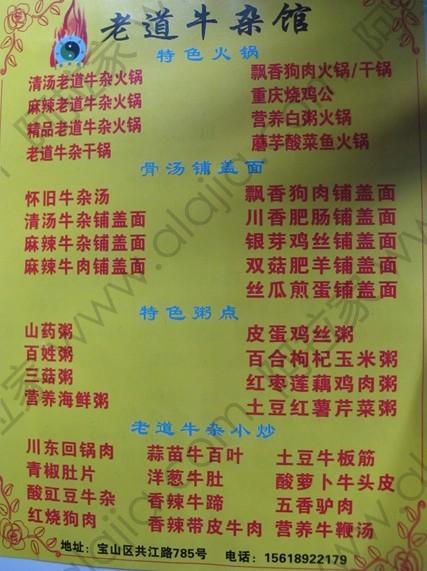 老道牛杂馆
特色火锅
清汤老道牛杂火锅 飘香狗肉火锅/干锅
麻辣老道牛杂火锅 重庆烧鸡公
精品老道牛杂火锅 营养白粥火锅
老道牛杂干锅 蘑芋酸菜鱼火锅
骨汤铺盖面
怀旧牛杂汤 飘香狗肉铺盖面
清汤牛杂铺盖面 川香肥肠铺盖面
麻辣牛杂铺盖面 银芽鸡丝铺盖面
麻辣牛肉铺盖面 双菇肥羊铺盖面
丝瓜煎蛋铺盖面
特色粥点
山药粥 皮蛋鸡丝粥
百姓粥 百合枸杞玉米粥
三菇粥 红枣莲藕鸡肉粥
营养海鲜粥 土豆红薯芹菜粥
老道牛杂小炒
川东回锅肉 蒜苗牛百叶 土豆牛板筋
青椒肚片 洋葱牛肚 酸萝卜牛头皮
酸豇豆牛杂 香辣牛蹄 五香驴肉
红烧狗肉 香辣带皮牛肉 营养牛鞭汤
地址：宝山区共江路785号 电话：15618922179
www.alajia.com